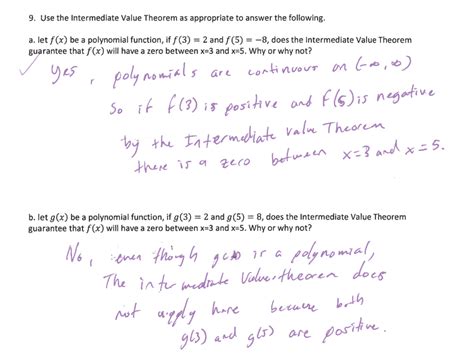 9. Use the Intermediate Value Theorem as appropriate to answer the following.
a. let f(x) be a polynomial function, if f(3) = 2 and f(5) = −8, does the Intermediate Value Theorem
guarantee that f(x) will have a zero between x=3 and x=5. Why or why not?
Yes, polynomials are continuous on (-∞, ∞)
So if f(3) is positive and f(5) is negative
by the Intermediate Value Theorem
there is a zero between x=3 and x=5.
b. let g(x) be a polynomial function, if g(3) = 2 and g(5) = 8, does the Intermediate Value Theorem
guarantee that f(x) will have a zero between x=3 and x=5. Why or why not?
No, even though g(x) is a polynomial,
The intermediate Value theorem does
not apply here because both
g(3) and g(5) are positive.